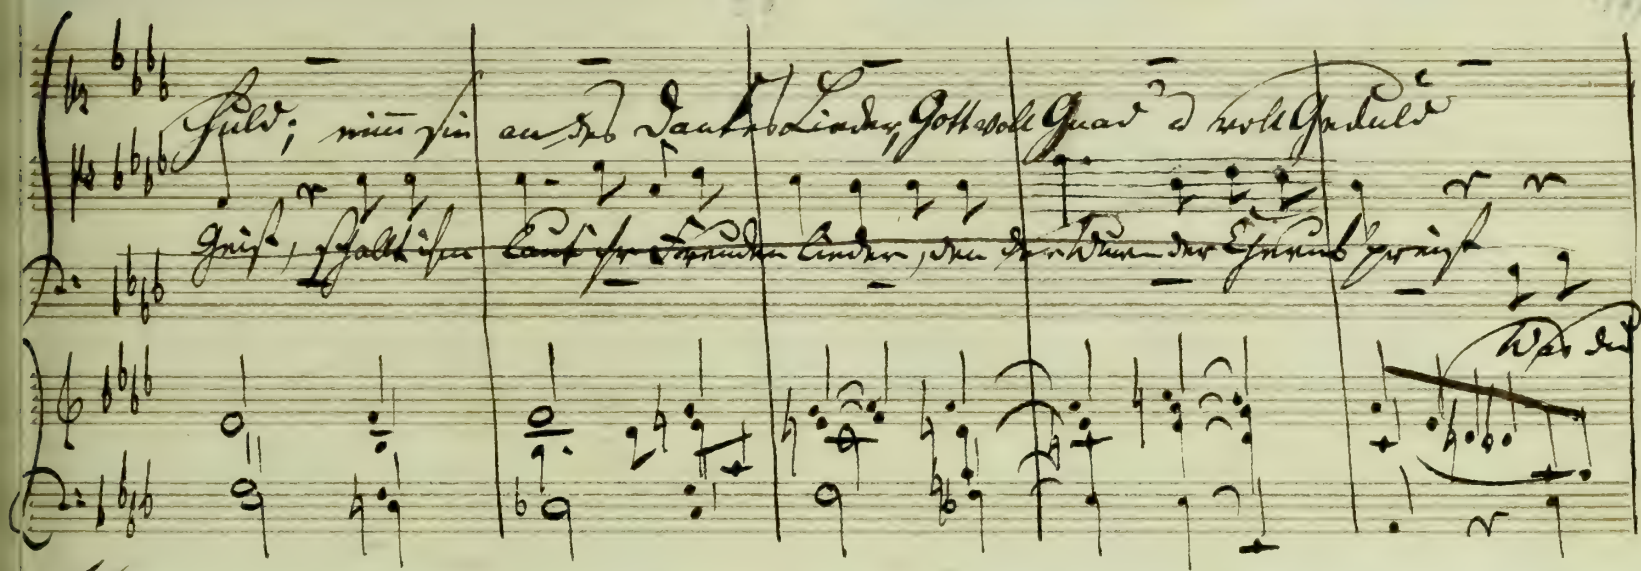 Huld; nim̅ sie an des Dankes Lieder, Gott voll Gnad' u voll Geduld
Geist, schallt ihm laut ihr Freuden lieder, den der der Ehren preist
Was du